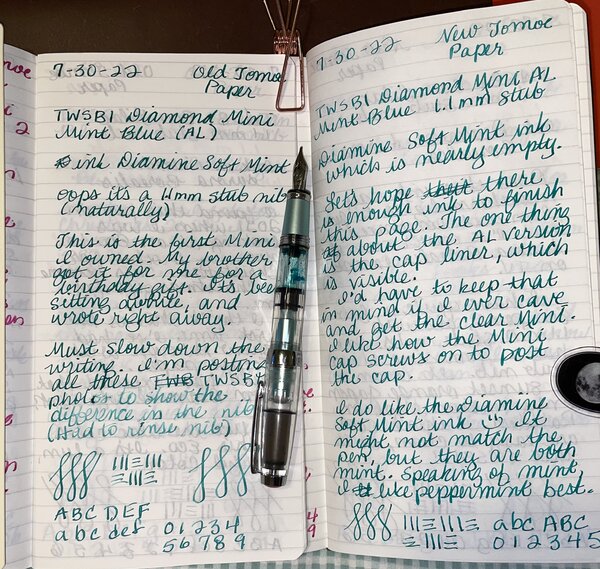 7-30-22 Old Tomoe
Paper
TWSBI Diamond Mini
Mint Blue (AL)
ink Diamine Soft Mint
oops its a 1.1mm stub nib
(naturally)
This is the first Mini
I owned. My brother
got it for me for a
birthday gift. Its been
sitting awhile, and
wrote right away.
Must slow down the
writing. I'm posting
all these TWB TWSBI
photos to show the
difference in the nib
(Had to rinse nib)
ABC DEF
abc def 01234
56789
7-30-22 New Tomoe
Paper
TWSBI Diamond Mini AL
Mint Blue 1.1mm stub
Diamine Soft Mint ink
which is nearly empty.
Let's hope thatt there
is enough ink to finish
this page. The one thing
about the AL version
is the cap liner, which
is visible.
I'd have to keep that
in mind if I ever cave
and get the clear Mint.
I like how the Mini
cap screws on to post
the cap.
I do like the Diamine
Soft Mint ink It
might not match the
pen, but they are both
mint. Speaking of mint,
I like peppermint best.
abc ABC
012345